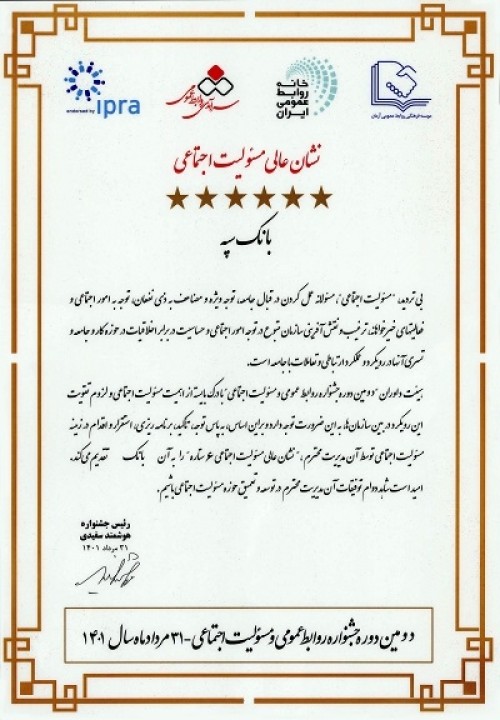 endorsed by ipra
سرآمدی روابط عمومی
خانه
روابط
عمومی
ایران
موسسه فرهنگی روابط عمومی آرمان
نشان عالی مسئولیت اجتماعی
بانک سپه
بی تردید، "مسئولیت اجتماعی"، مسئولانه عمل کردن در قبال جامعه، توجه ویژه و مضاعف به ذی نفعان، توجه به امور اجتماعی و
فعالیتهای خیرخواهانه، ترغیب و نقش آفرینی سازمان متبوع در توجه امور اجتماعی و حساسیت در برابر اخلاقیات در حوزه کار و جامعه و
تسری آنها در رویکرد و عملکرد ارتباطی و تعاملات با جامعه است.
هیئت داوران "دومین دوره جشنواره روابط عمومی و مسئولیت اجتماعی" با درک بایسته از اهمیت مسئولیت اجتماعی و لزوم تقویت
این رویکرد در بین سازمان‌ها، به این ضرورت توجه دارد و بر این اساس، به پاس توجه، تأکید، برنامه ریزی، استقرار و اقدام در زمینه
مسئولیت اجتماعی توسط آن مدیریت محترم، "نشان عالی مسئولیت اجتماعی ۶ ستاره" را به آن بانک تقدیم می‌کند.
امید است شاهد دوام توفیقات آن مدیریت محترم در توسعه و تعمیق حوزه مسئولیت اجتماعی باشیم.
رئیس جشنواره
هوشمند سفیدی
۳۱ مرداد ۱۴۰۱
دومین دوره جشنواره روابط عمومی و مسئولیت اجتماعی - ۳۱ مردادماه سال ۱۴۰۱